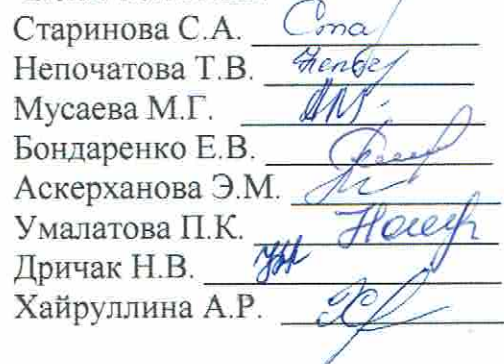 Старинова С.А.
Непочатова Т.В.
Мусаева М.Г.
Бондаренко Е.В.
Аскерханова Э.М.
Умалатова П.К.
Дричак Н.В.
Хайруллина А.Р.